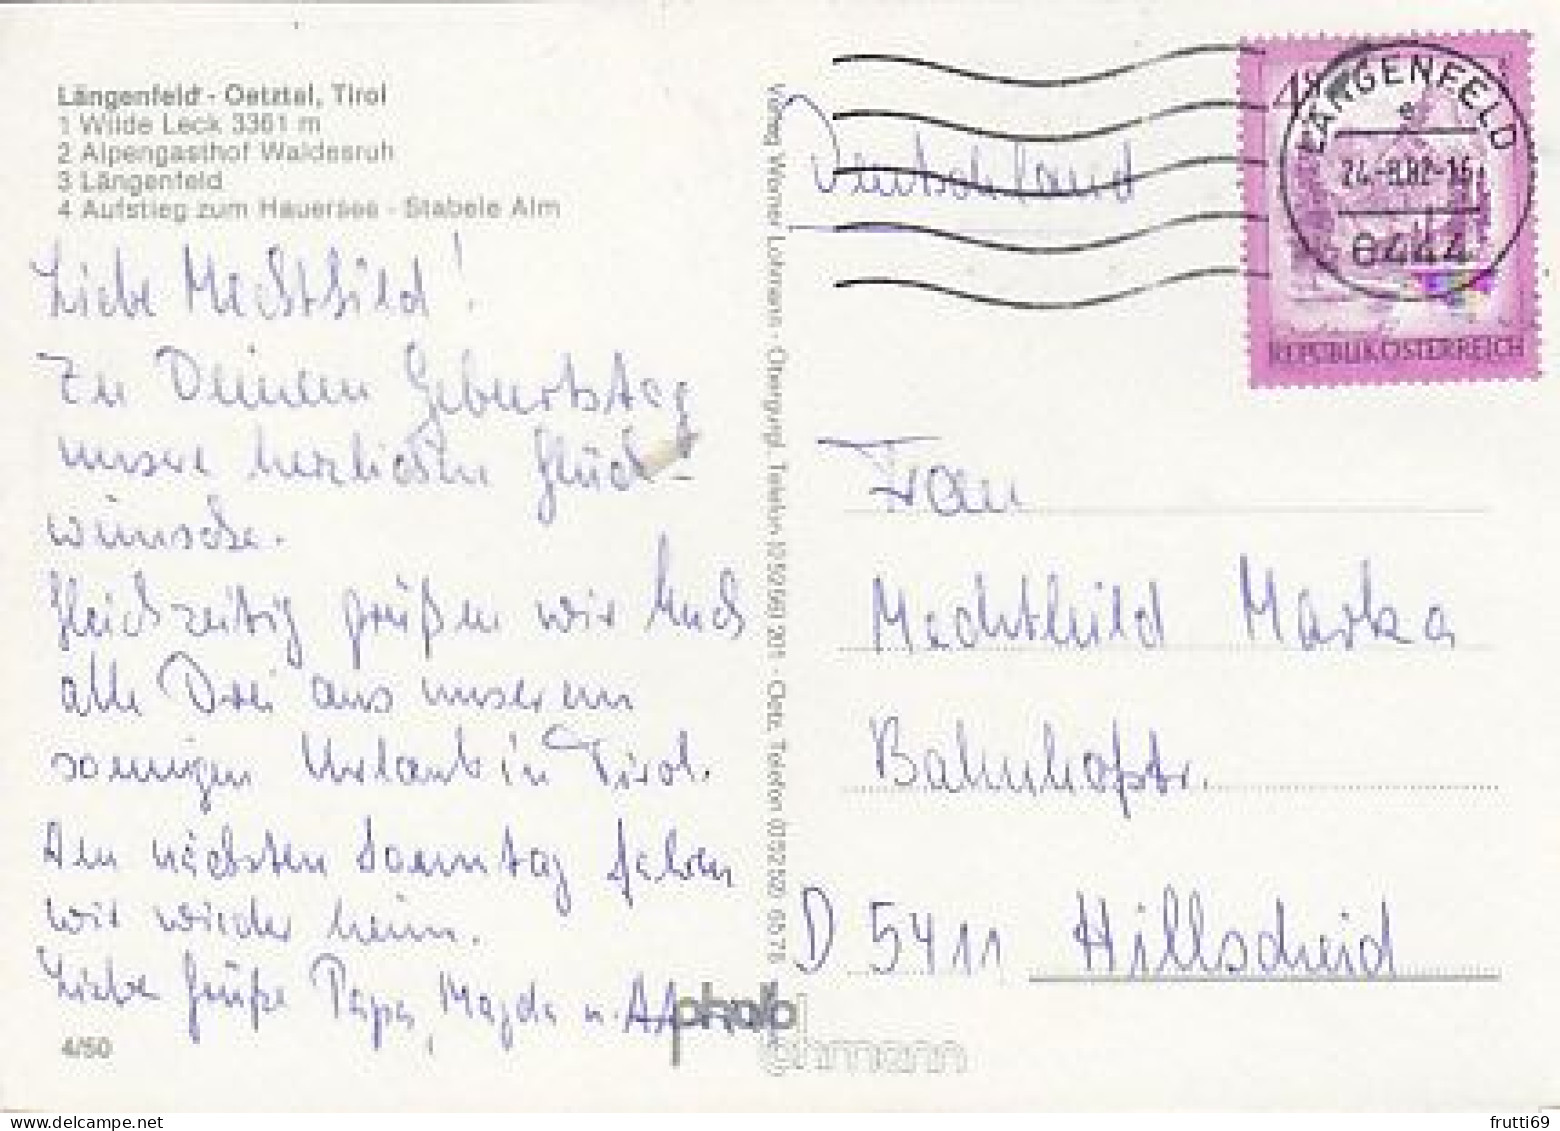 Längenfeld - Oetztal, Tirol
1 Wilde Leck 3361 m
2 Alpengasthof Waldesruh
3 Längenfeld
4 Aufstieg zum Hauersee - Stabele Alm
Liebe Mechthild!
Zu Deinem Geburtstag
unsere herzlichen Glück-
wünsche.
Gleichzeitig grüßen wir Euch
alle Drei aus unserem
sonnigen Urlaub in Tirol.
Am nächsten Sonntag fahren
wir wieder heim.
Liebe Grüße Papa, Magda u.
4/50
Verlag Werner Lohmann - Obergurgl, Telefon (05256) 201 - Oetz, Telefon (05252) 6578
photo
lohmann
Deutschland
LÄNGENFELD
24.-8.82-16
6444
REPUBLIK ÖSTERREICH
Frau
Mechthild Marka
Bahnhofstr.
D 5411 Hillscheid
frutti69